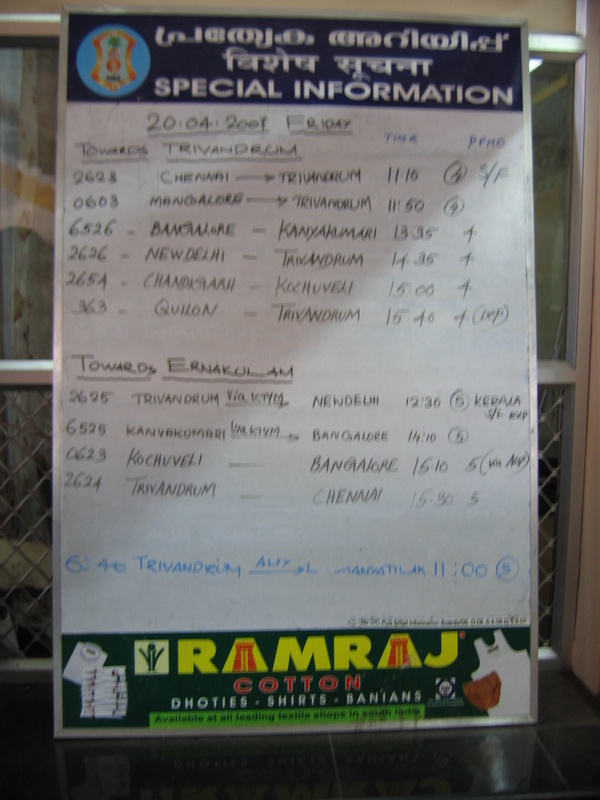 പ്രത്യേക അറിയിപ്പ്
विशेष सूचना
SPECIAL INFORMATION
20·04·2007 FRIDAY
TOWARDS TRIVANDRUM TIME PFNO
2623 CHENNAI → TRIVANDRUM 11:10 (4) S/F
0603 MANGALORE → TRIVANDRUM 11:50 (4)
6526 - BANGALORE - KANYAKUMARI 13·35 4
2626 - NEWDELHI - TRIVANDRUM 14·35 4
2654 - CHANDIGARH - KOCHUVELI 15·00 4
363 - QUILON - TRIVANDRUM 15·40 4 (DEP)
TOWARDS ERNAKULAM
2625 TRIVANDRUM Via KTYM NEWDELHI 12:30 (5) KERALA S/F EXP
6525 KANYAKUMARI Via KTYM → BANGALORE 14:10 (5)
0623 KOCHUVELI — BANGALORE 15·10 5 (via Alp)
2624 TRIVANDRUM — CHENNAI 15·30 5
TRIVANDRUM ALPY → L 11:00 (5)
RAMRAJ
COTTON
DHOTIES - SHIRTS - BANIANS
Available at all leading textile shops in south india